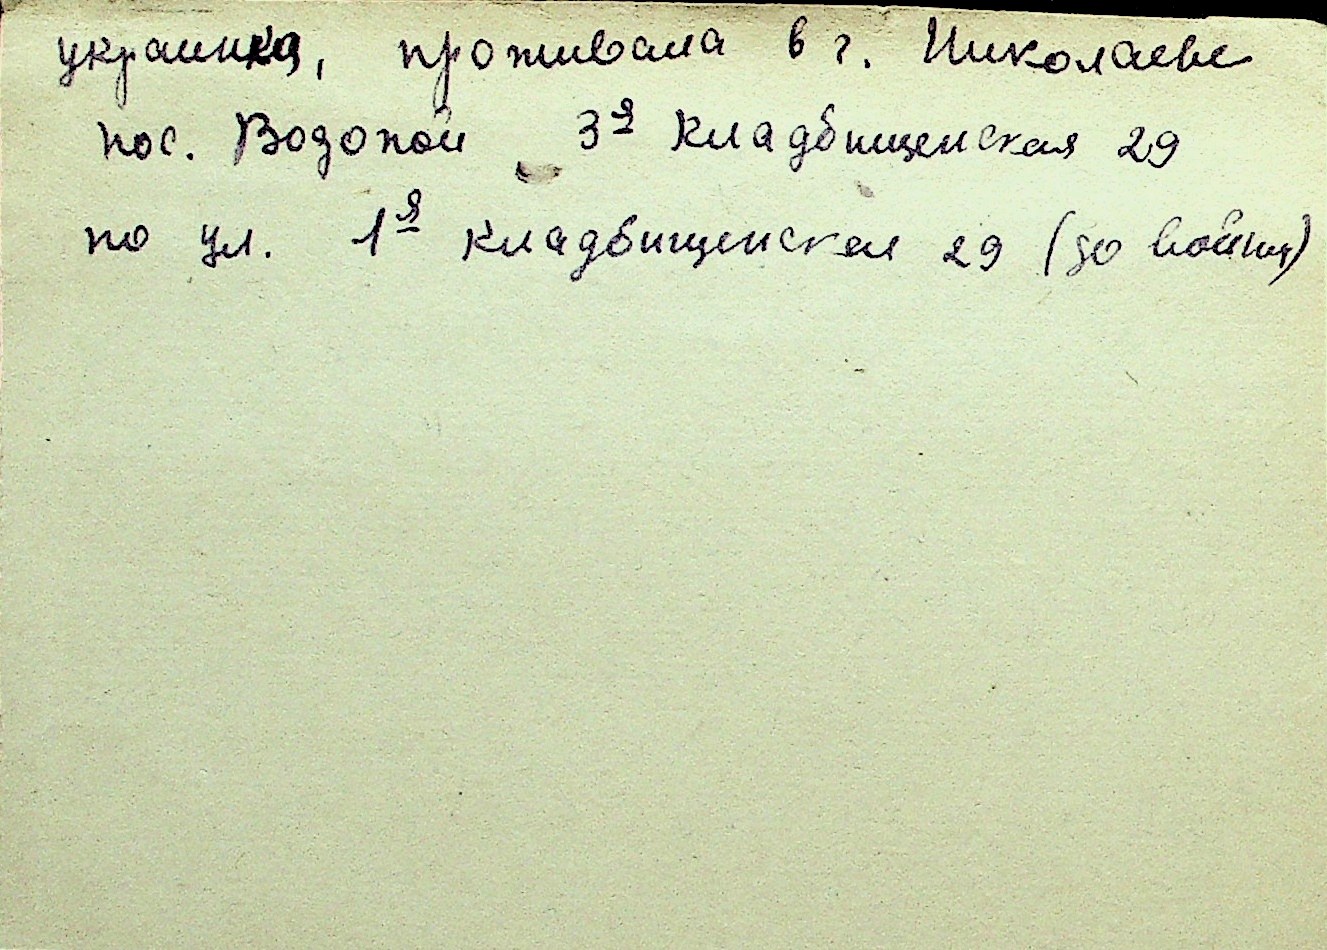 украинка, проживала в г. Николаеве
пос. Водопой 3я Кладбищенская 29
по ул. 1я Кладбищенская 29 (до войны)